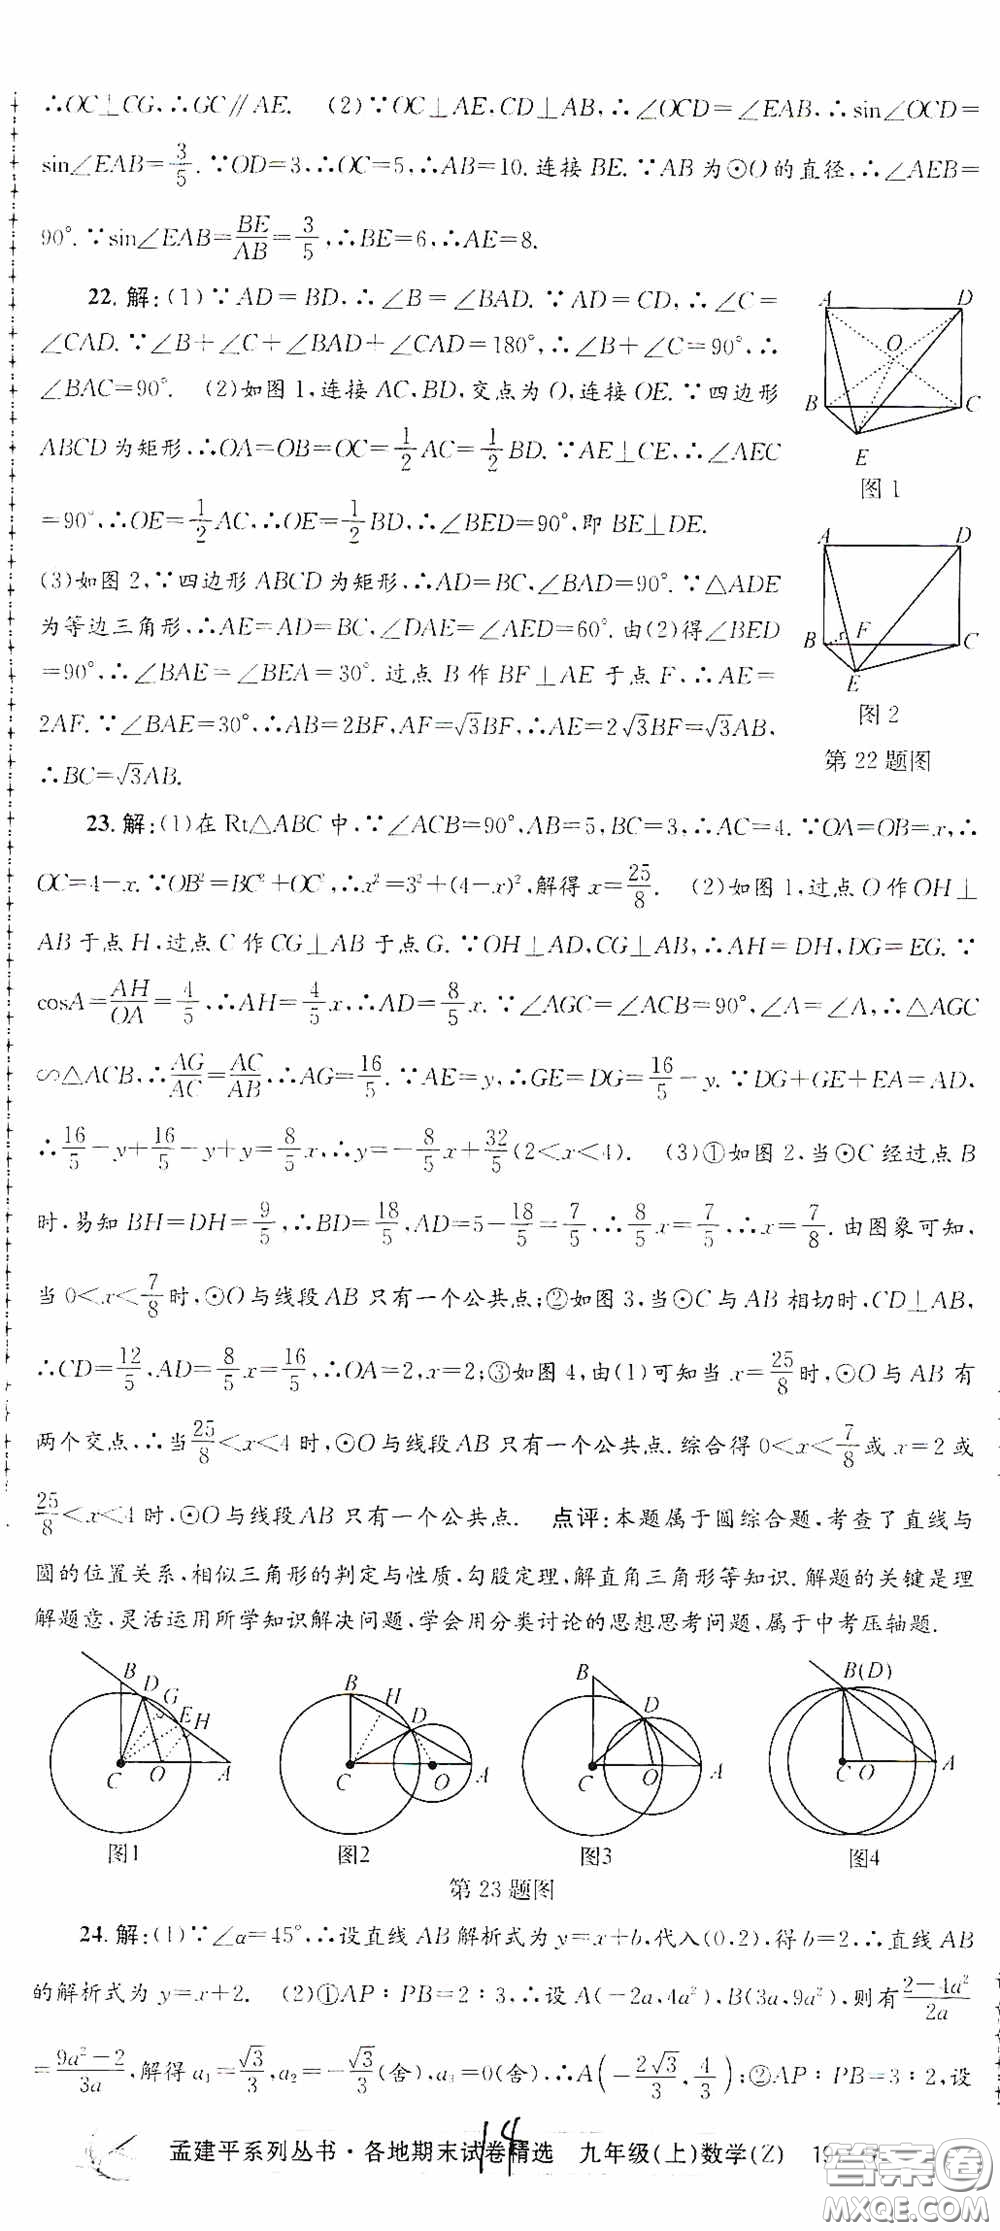 ∴OC⊥CG,∴GC∥AE. (2)∵OC⊥AE,CD⊥AB,∴∠OCD=∠EAB,∴sin∠OCD=
sin∠EAB=3/5.∵OD=3,∴OC=5,∴AB=10.连接BE.∵AB为⊙O的直径,∴∠AEB=
90°.∵sin∠EAB=BE/AB=3/5,∴BE=6,∴AE=8.
22.解:(1)∵AD=BD,∴∠B=∠BAD.∵AD=CD,∴∠C=
∠CAD.∵∠B+∠C+∠BAD+∠CAD=180°,∴∠B+∠C=90°,∴
∠BAC=90°. (2)如图1,连接AC,BD,交点为O,连接OE.∵四边形
ABCD为矩形,∴OA=OB=OC=1/2AC=1/2BD.∵AE⊥CE,∴∠AEC
=90°,∴OE=1/2AC,∴OE=1/2BD,∴∠BED=90°,即BE⊥DE.
(3)如图2,∵四边形ABCD为矩形,∴AD=BC,∠BAD=90°.∵△ADE
为等边三角形,∴AE=AD=BC,∠DAE=∠AED=60°.由(2)得∠BED
=90°,∴∠BAE=∠BEA=30°.过点B作BF⊥AE于点F,∴AE=
2AF.∵∠BAE=30°,∴AB=2BF,AF=√3BF,∴AE=2√3BF=√3AB,
∴BC=√3AB.
A D
O
B C
E
图1
A D
B F C
E
图2
第22题图
23.解:(1)在Rt△ABC中,∵∠ACB=90°,AB=5,BC=3,∴AC=4.∵OA=OB=x,∴
OC=4-x.∵OB²=BC²+OC²,∴x²=3²+(4-x)²,解得x=25/8. (2)如图1,过点O作OH⊥
AB于点H,过点C作CG⊥AB于点G.∵OH⊥AD,CG⊥AB,∴AH=DH,DG=EG.∵
cosA=AH/OA=4/5,∴AH=4/5x,∴AD=8/5x.∵∠AGC=∠ACB=90°,∠A=∠A,∴△AGC
∽△ACB,∴AG/AC=AC/AB,∴AG=16/5.∵AE=y,∴GE=DG=16/5-y.∵DG+GE+EA=AD,
∴16/5-y+16/5-y+y=8/5x,∴y=-8/5x+32/5(2<x<4). (3)①如图2,当⊙C经过点B
时,易知BH=DH=9/5,∴BD=18/5,AD=5-18/5=7/5,∴8/5x=7/5,∴x=7/8.由图象可知,
当0<x<7/8时,⊙O与线段AB只有一个公共点;②如图3,当⊙C与AB相切时,CD⊥AB,
∴CD=12/5,AD=8/5x=16/5,∴OA=2,x=2;③如图4,由(1)可知当x=25/8时,⊙O与AB有
两个交点,∴当25/8<x<4时,⊙O与线段AB只有一个公共点.综合得0<x<7/8或x=2或
25/8<x<4时,⊙O与线段AB只有一个公共点. 点评:本题属于圆综合题,考查了直线与
圆的位置关系,相似三角形的判定与性质,勾股定理,解直角三角形等知识.解题的关键是理
解题意,灵活运用所学知识解决问题,学会用分类讨论的思想思考问题,属于中考压轴题.
B D G E H C O A
B H D C O A
B D C O A
B(D) C O A
图1 图2 图3 图4
第23题图
24.解:(1)∵∠α=45°,∴设直线AB解析式为y=x+b,代入(0,2),得b=2,∴直线AB
的解析式为y=x+2. (2)①AP∶PB=2∶3,∴设A(-2a,4a²),B(3a,9a²),则有(2-4a²)/2a
=(9a²-2)/3a,解得a₁=√3/3,a₂=-√3/3(舍),a₃=0(舍).∴A(-2√3/3,4/3);②AP∶PB=3∶2,设
孟建平系列丛书·各地期末试卷精选 九年级(上)数学(Z)
14
答案圈
MXQE.COM